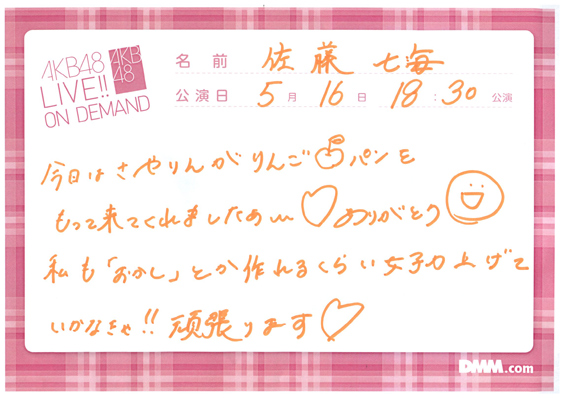 AKB48
LIVE!!
ON DEMAND
AKB
48
名前 佐藤 七海
公演日 5月 16日 18:30 公演
今日はさやりんがりんごパンを
もって来てくれましたあ〜♡ありがとう
私も「おかし」とか作れるくらい女子力上げて
いかなきゃ!!頑張ります♡
DMM.com